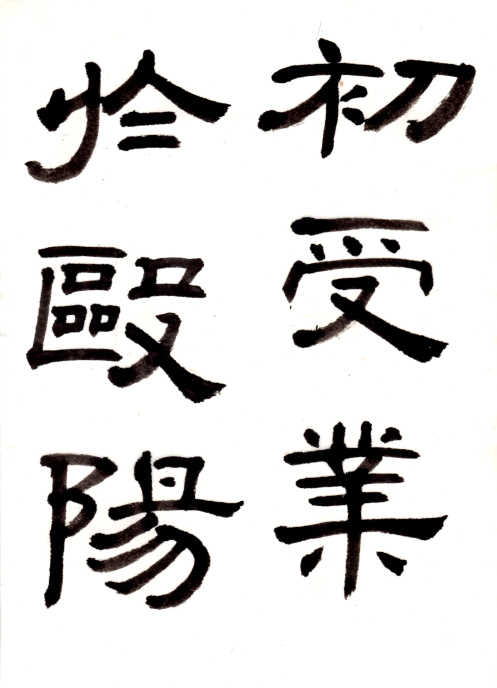 初受業
於毆陽